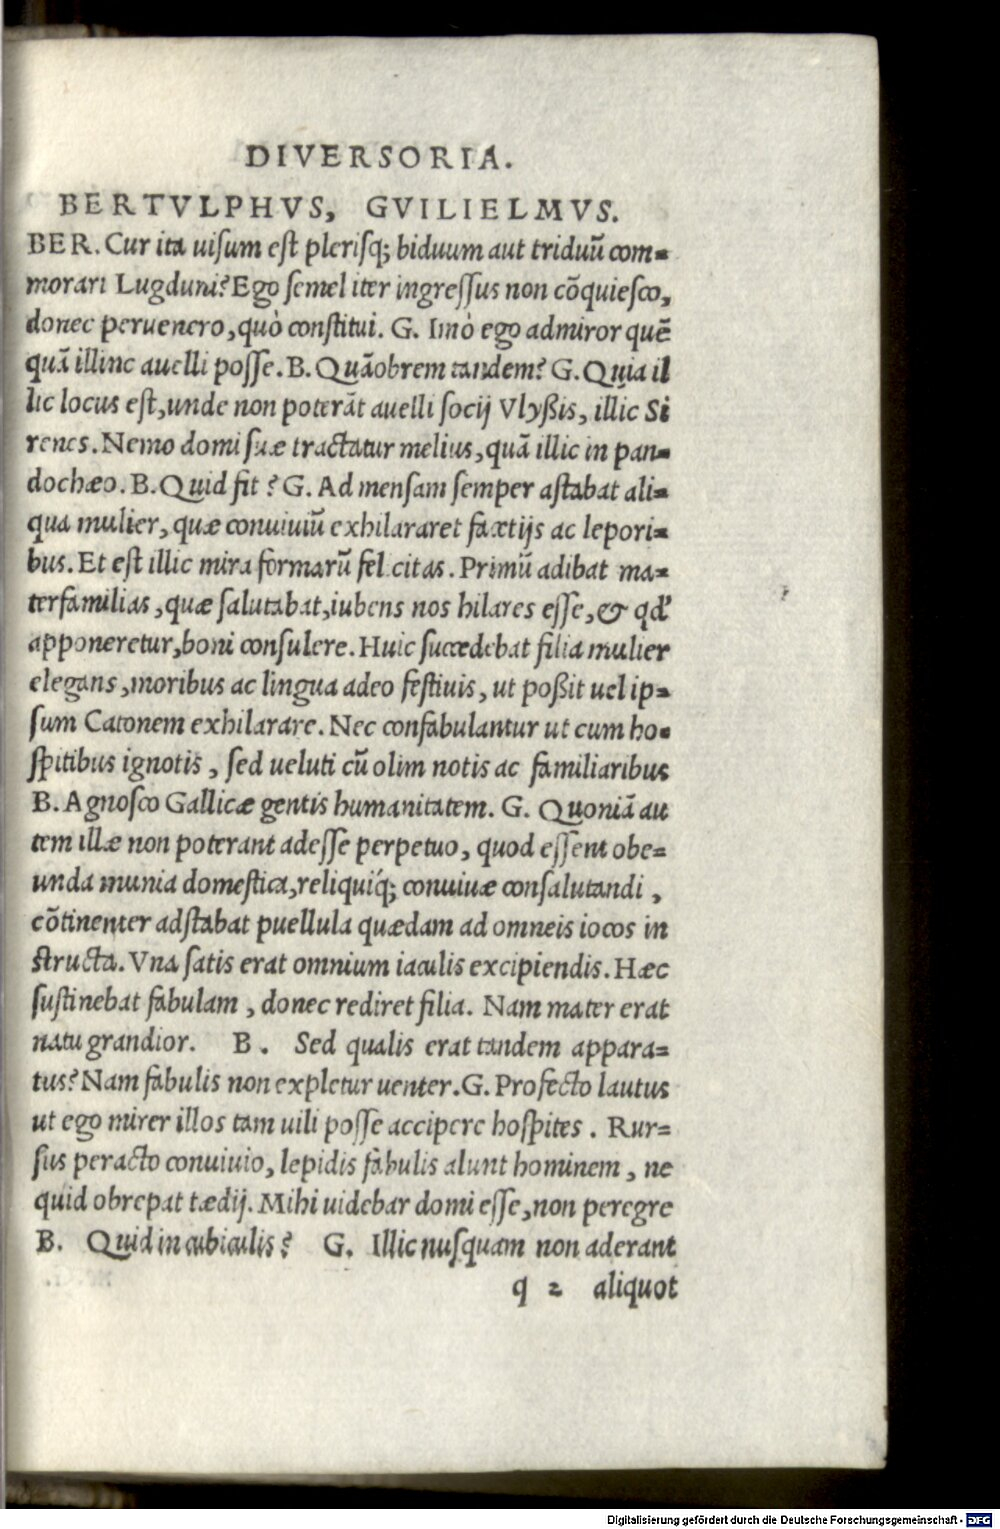 DIVERSORIA.
BERTVLPHVS, GVILIELMVS.
BER. Cur ita uiſum eſt pleriſq; biduum aut triduū com=
morari Lugduni? Ego ſemel iter ingreſſus non cõquieſco,
donec peruenero, quò conſtitui. G. Imò ego admiror quē
quā illinc auelli poſſe. B. Quāobrem tandem? G. Quia il
lic locus eſt, unde non poterāt auelli ſocij Vlyßis, illic Si
renes. Nemo domi ſuæ tractatur melius, quā illic in pan=
dochæo. B. Quid fit? G. Ad menſam ſemper aſtabat ali=
qua mulier, quæ conuiuiū exhilararet facetijs ac lepori=
bus. Et eſt illic mira formarū fel citas. Primū adibat ma=
terfamilias, quæ ſalutabat, iubens nos hilares eſſe, & qď
apponeretur, boni conſulere. Huic ſuccedebat filia mulier
elegans, moribus ac lingua adeo feſtiuis, ut poßit uel ip=
ſum Catonem exhilarare. Nec confabulantur ut cum ho=
ſpitibus ignotis, ſed ueluti cū olim notis ac familiaribus
B. Agnoſco Gallicæ gentis humanitatem. G. Quoniā au
tem illæ non poterant adeſſe perpetuo, quod eſſent obe=
unda munia domeſtica, reliquiq́; conuiuæ conſalutandi,
cõtinenter adſtabat puellula quædam ad omneis iocos in
ſtructa. Vna ſatis erat omnium iaculis excipiendis. Hæc
ſuſtinebat fabulam, donec rediret filia. Nam mater erat
natu grandior. B. Sed qualis erat tandem appara=
tus? Nam fabulis non expletur uenter. G. Profecto lautus
ut ego mirer illos tam uili poſſe accipere hoſpites. Rur=
ſus peracto conuiuio, lepidis fabulis alunt hominem, ne
quid obrepat tædij. Mihi uidebar domi eſſe, non peregre
B. Quid in cubiculis? G. Illic nuſquam non aderant
q 2 aliquot
Digitalisierung gefördert durch die Deutsche Forschungsgemeinschaft - DFG